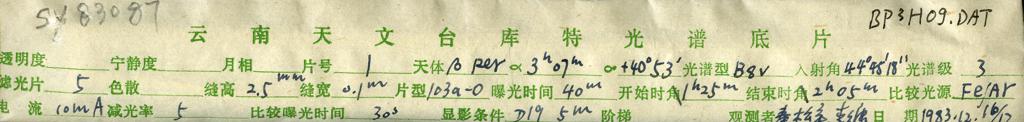 SY83087
BP3H09.DAT
云南天文台库特光谱底片
透明度 宁静度 月相 片号 1 天体 β per α 3ʰ07ᵐ α +40°53′ 光谱型 B8V 入射角 44°48′18″ 光谱级 3
滤光片 5 色散 缝高 2.5ᵐᵐ 缝宽 0.1ᵐᵐ 片型 103a-O 曝光时间 40ᵐ 开始时角 1ʰ25ᵐ 结束时角 2ʰ05ᵐ 比较光源 Fe/Ar
电流 10mA 减光率 5 比较曝光时间 30s 显影条件 D19 5ᵐ 阶梯 观测者 日期 1983.12.16/17